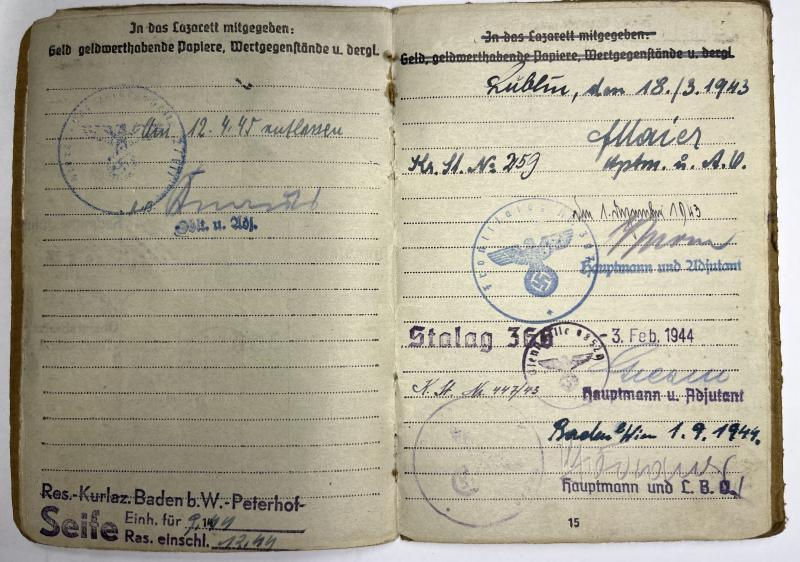 In das Lazarett mitgegeben:
Geld geldwerthabende Papiere, Wertgegenstände u. dergl.
Am 12.4.45 entlassen
Oblt. u. Adj.
Res.-Kurlaz. Baden b.W.-Peterhof-
Seife
Einh. für 9.44
Ras. einschl. 12.44
In das Lazarett mitgegeben:
Geld, geldwerthabende Papiere, Wertgegenstände u. dergl.
Lublin, den 18./3.1943
Maier
Kr. St. No 259
Hptm. u. A.O.
1. 1943
Hauptmann und Adjutant
Stalag
-3. Feb. 1944
K. St. Nr 447/43
Hauptmann u. Adjutant
Baden b/Wien 1.9.1944.
Hauptmann und L. B. O.
15